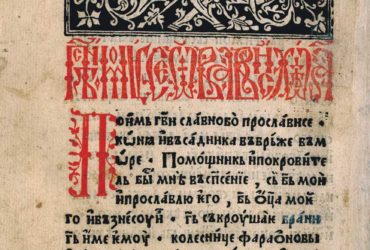 Поимь гв҃и славнобо прослависе ·
кѡнꙗ ивьсадника вьврьже вьм
оре · Помощникь ипокровите
ль бы мнѣ вьспсение, сь б҃ь мои
ипрославлю ѥго, б҃ь ѡц҃а моѥ
го ивьзнесоуи · г҃ь ськроушаѥи брани
г҃ь име ѥмоу · колесницѥ фараѡновы